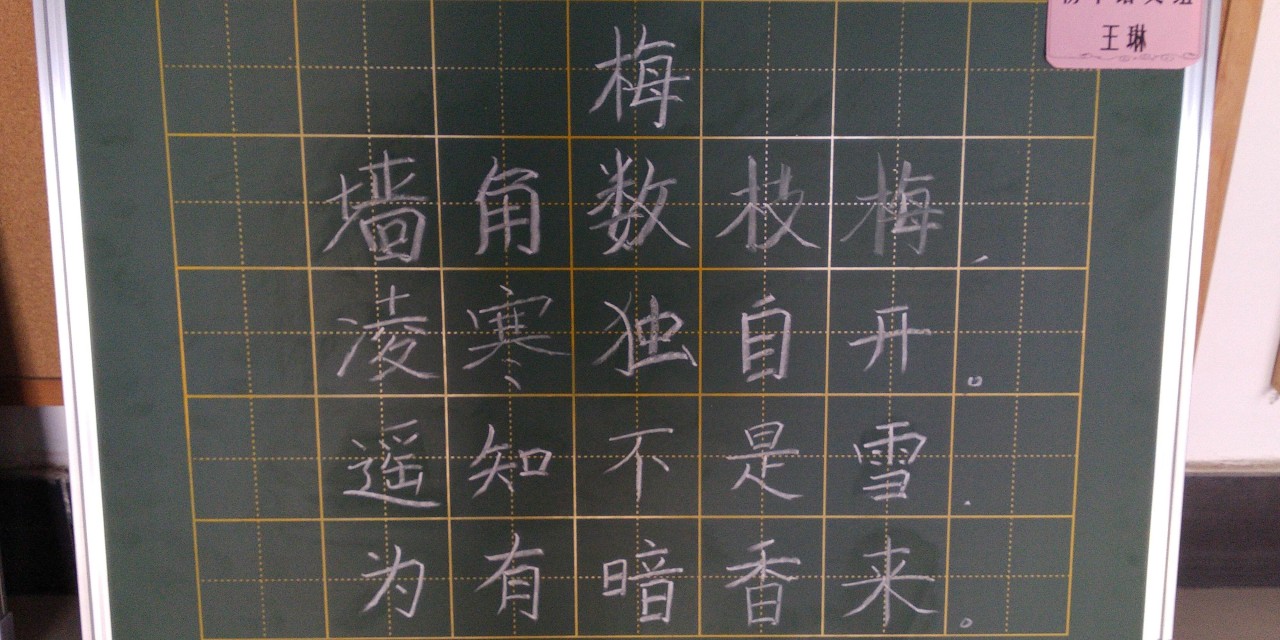 王琳
梅
墙角数枝梅,
凌寒独自开。
遥知不是雪,
为有暗香来。